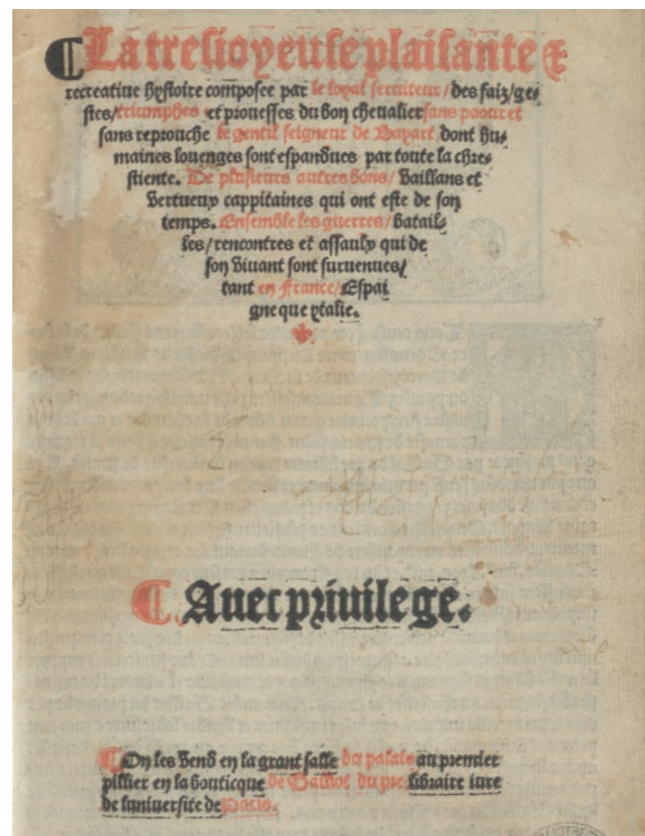 ¶ La tresioyeuse plaisante &
recreatiue hystoire composee par le loyal seruiteur / des faiz / ge-
stes / triumphes et prouesses du bon cheualier sans paour et
sans reprouche le gentil seigneur de Bayart dont hu-
maines louenges sont espandues par toute la chre-
stiente. De plusieurs autres bons / vaillans et
vertueux cappitaines qui ont este de son
temps. Ensemble les guerres / batail-
les / rencontres et assaulx qui de
son viuant sont suruenues /
tant en France / Espai
gne que ytalie.
¶ Auec priuilege.
¶ On les vend en la grant salle du palais au premier
pillier en la bouticque de Galliot du pre libraire iure
de luniuersite de Paris.